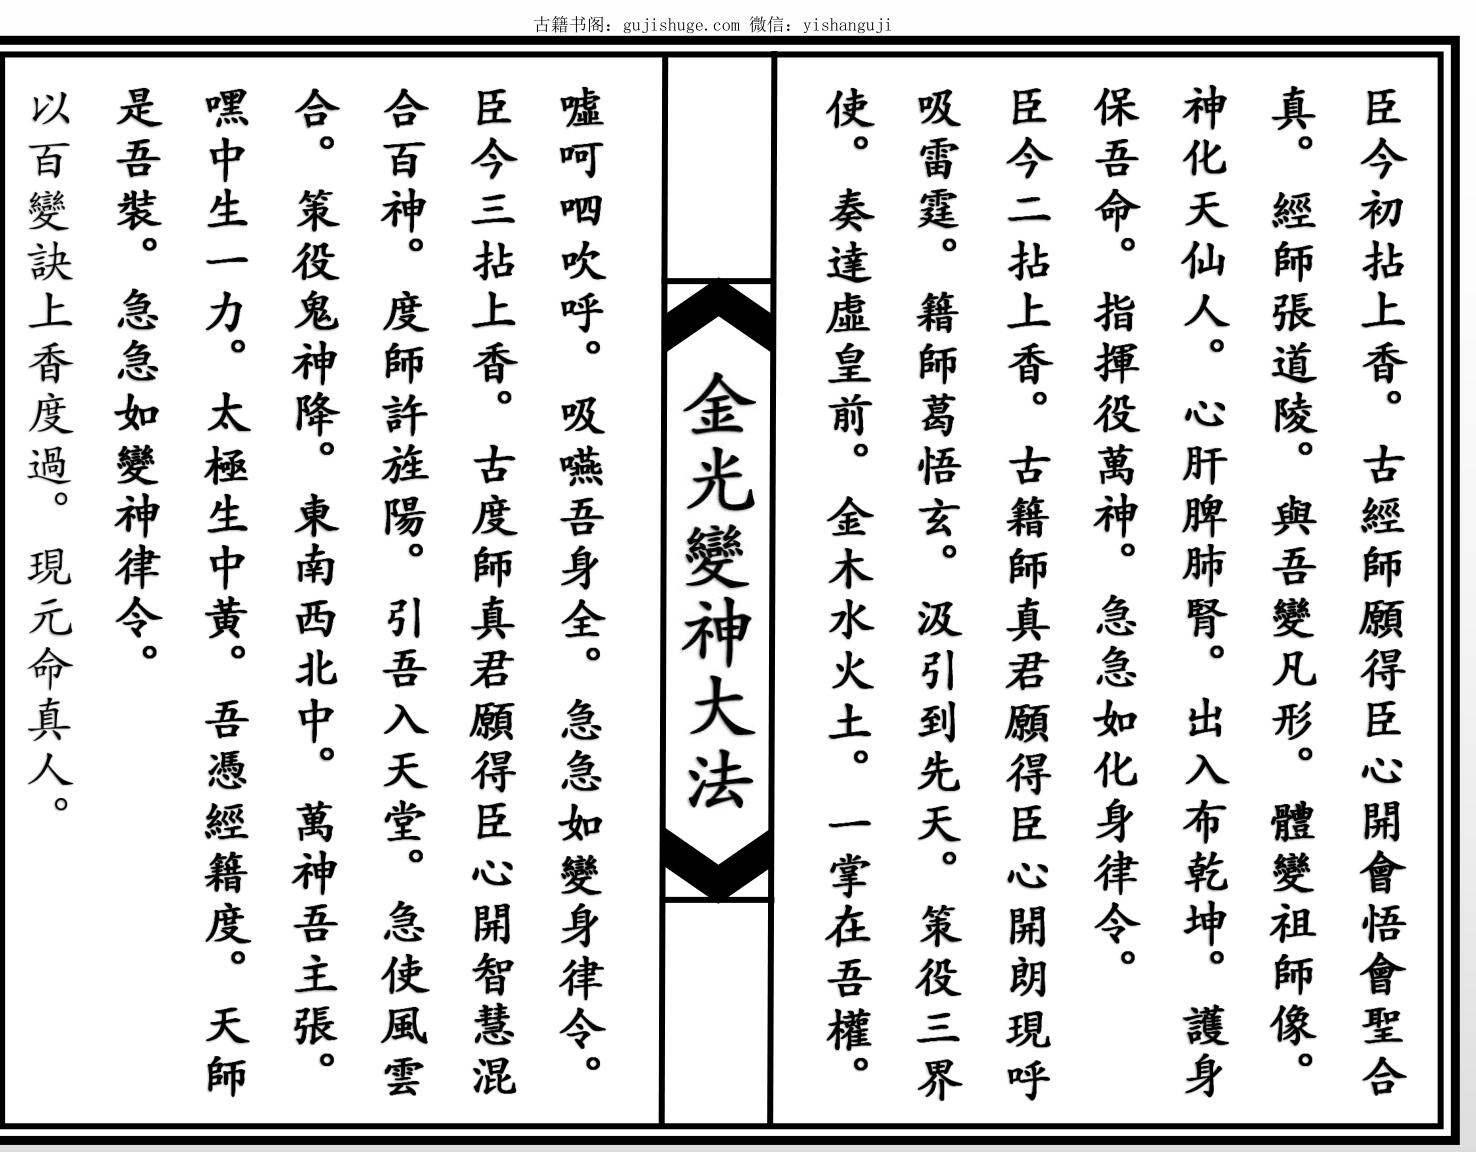 古籍书阁：gujishuge.com 微信：yishanguji
臣今初拈上香。古經師願得臣心開會悟會聖合
真。經師張道陵。與吾變凡形。體變祖師像。
神化天仙人。心肝脾肺腎。出入布乾坤。護身
保吾命。指揮役萬神。急急如化身律令。
臣今二拈上香。古籍師真君願得臣心開朗現呼
吸雷霆。籍師葛悟玄。汲引到先天。策役三界
使。奏達虛皇前。金木水火土。一掌在吾權。
金光變神大法
噓呵呬吹呼。吸嚥吾身全。急急如變身律令。
臣今三拈上香。古度師真君願得臣心開智慧混
合百神。度師許旌陽。引吾入天堂。急使風雲
合。策役鬼神降。東南西北中。萬神吾主張。
嘿中生一力。太極生中黃。吾憑經籍度。天師
是吾裝。急急如變神律令。
以百變訣上香度過。現元命真人。